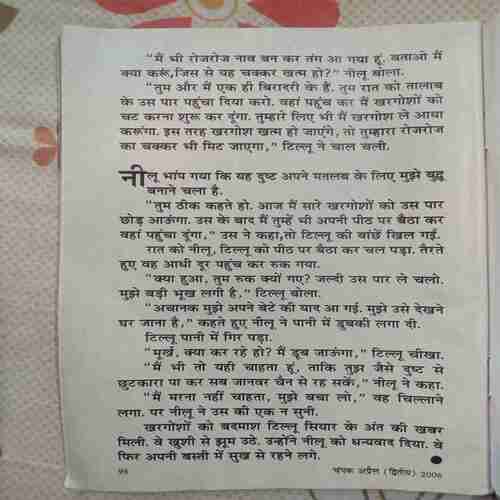 “मैं भी रोजरोज नाव बन कर तंग आ गया हूं. बताओ मैं
क्या करूं,जिस से यह चक्कर खत्म हो?” नीलू बोला.
“तुम और मैं एक ही बिरादरी के हैं. तुम रात को तालाब
के उस पार पहुंचा दिया करो. वहां पहुंच कर मैं खरगोशों को
चट करना शुरू कर दूंगा. तुम्हारे लिए भी मैं खरगोश ले आया
करूंगा. इस तरह खरगोश खत्म हो जाएंगे, तो तुम्हारा रोजरोज
का चक्कर भी मिट जाएगा,” टिल्लू ने चाल चली.
नीलू भांप गया कि यह दुष्ट अपने मतलब के लिए मुझे बुद्धू
बनाने चला है.
“तुम ठीक कहते हो. आज मैं सारे खरगोशों को उस पार
छोड़ आऊंगा. उस के बाद मैं तुम्हें भी अपनी पीठ पर बैठा कर
वहां पहुंचा दूंगा,” उस ने कहा,तो टिल्लू की बांछें खिल गईं.
रात को नीलू, टिल्लू को पीठ पर बैठा कर चल पड़ा. तैरते
हुए वह आधी दूर पहुंच कर रुक गया.
“क्या हुआ, तुम रुक क्यों गए? जल्दी उस पार ले चलो.
मुझे बड़ी भूख लगी है,” टिल्लू बोला.
“अचानक मुझे अपने बेटे की याद आ गई. मुझे उसे देखने
घर जाना है,” कहते हुए नीलू ने पानी में डुबकी लगा दी.
टिल्लू पानी में गिर पड़ा.
“मूर्ख, क्या कर रहे हो? मैं डूब जाऊंगा,” टिल्लू चीखा.
“मैं भी तो यही चाहता हूं, ताकि तुझ जैसे दुष्ट से
छुटकारा पा कर सब जानवर चैन से रह सकें,” नीलू ने कहा.
“मैं मरना नहीं चाहता, मुझे बचा लो,” वह चिल्लाने
लगा. पर नीलू ने उस की एक न सुनी.
खरगोशों को बदमाश टिल्लू सियार के अंत की खबर
मिली. वे खुशी से झूम उठे. उन्होंने नीलू को धन्यवाद दिया. वे
फिर अपनी बस्ती में सुख से रहने लगे.
चंपक अप्रैल (द्वितीय) 2006